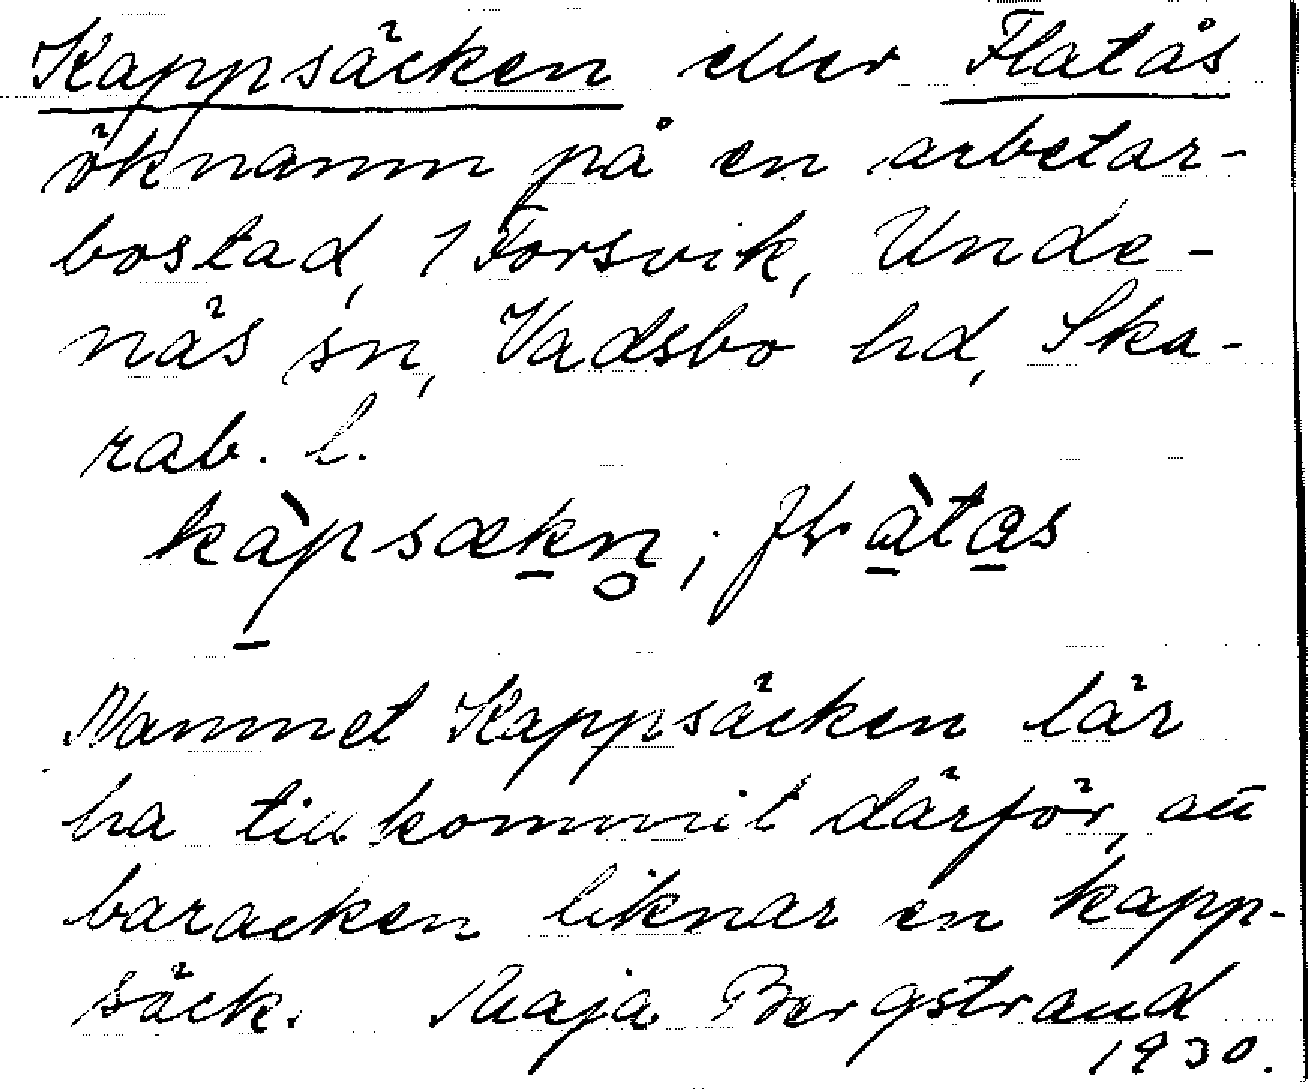 Kappsäcken eller Flatås
öknamn på en arbetar-
bostad, i Forsvik, Unde-
näs sn, Vadsbo hd, Ska-
rab. l.
kàpsækn̥;
Namnet Kappsäcken lär
ha tillkommit därför, att
baracken liknar en kapp-
säck. Maja Bergstrand
1930.